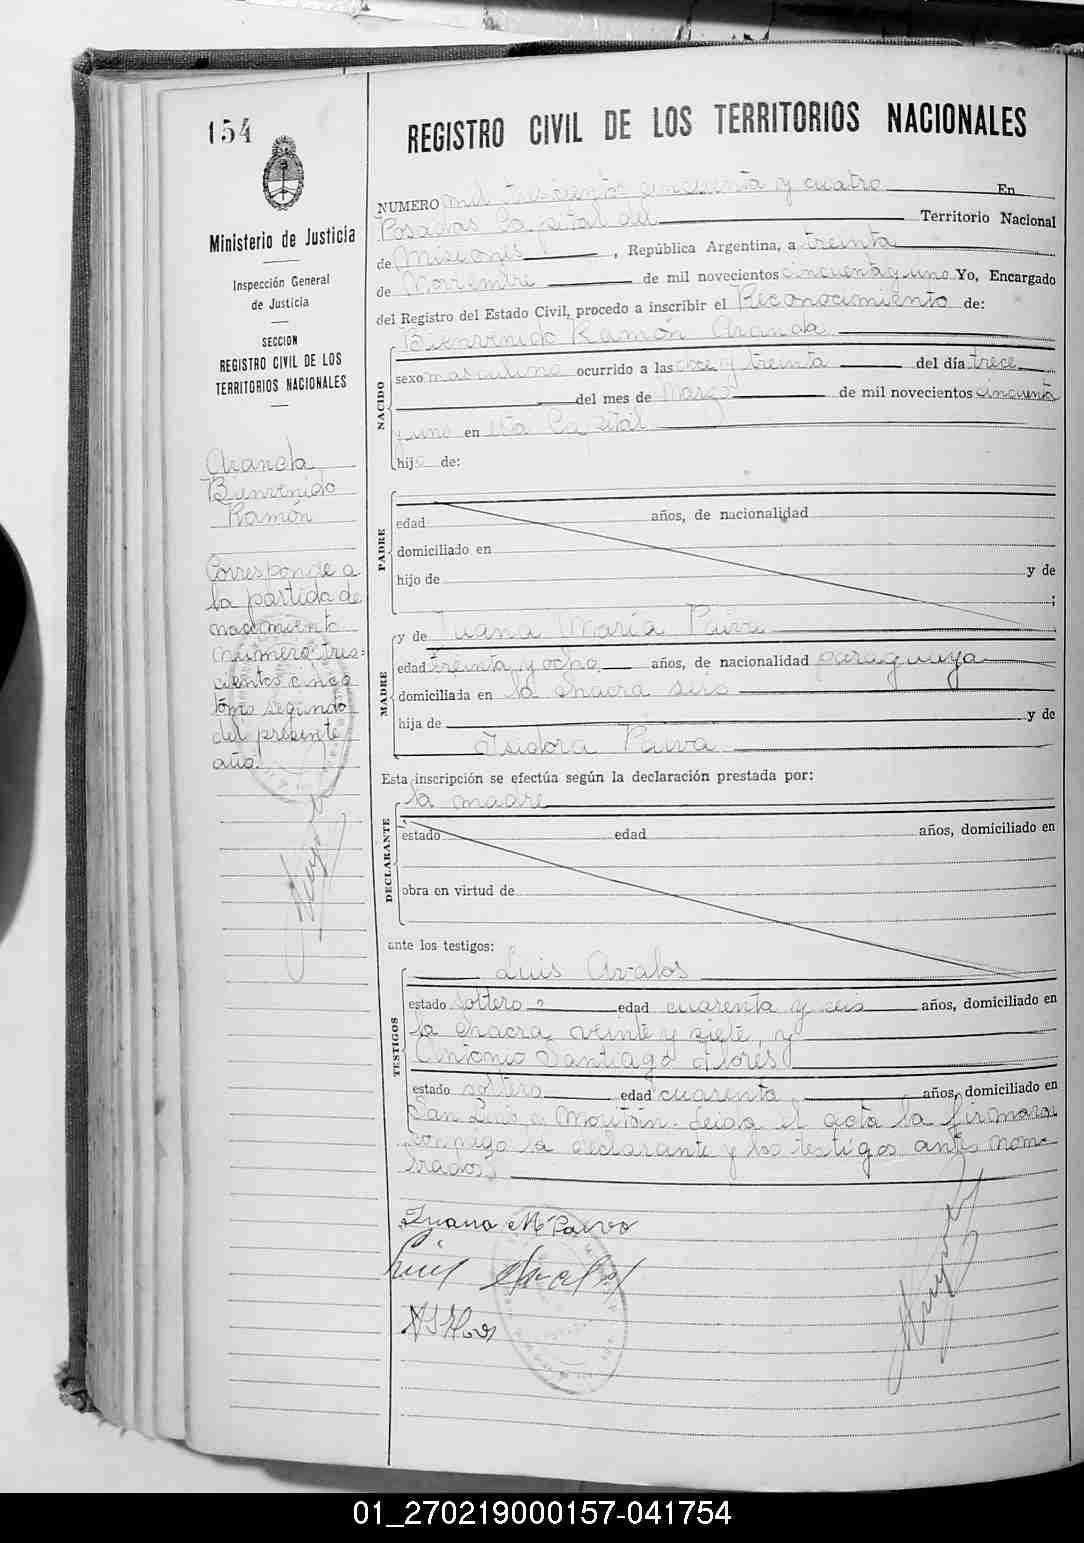 154
REGISTRO CIVIL DE LOS TERRITORIOS NACIONALES
Ministerio de Justicia
Inspección General
de Justicia
SECCION
REGISTRO CIVIL DE LOS
TERRITORIOS NACIONALES
Aranda
Bienvenido
Ramón
Corresponde a
la partida de
nacimiento
número tres-
cientos cinco
tomo segundo
del presente
año.
NUMERO mil trescientos cincuenta y cuatro En
Posadas Capital del Territorio Nacional
de Misiones, República Argentina, a treinta
de Noviembre de mil novecientos cincuenta y uno Yo, Encargado
del Registro del Estado Civil, procedo a inscribir el Reconocimiento de:
NACIDO
Bienvenido Ramón Aranda
sexo masculino ocurrido a las doce y treinta del día trece
del mes de Marzo de mil novecientos cincuenta
y uno en esta Capital
hijo de:
PADRE
edad años, de nacionalidad
domiciliado en
hijo de y de
;
MADRE
y de Juana María Paiva
edad treinta y ocho años, de nacionalidad paraguaya
domiciliada en la chacra seis
hija de y de
Isidora Paiva
Esta inscripción se efectúa según la declaración prestada por:
DECLARANTE
la madre
estado edad años, domiciliado en
obra en virtud de
ante los testigos:
TESTIGOS
Luis Avalos
estado soltero edad cuarenta y seis años, domiciliado en
la chacra veinte y siete, y
Antonio Santiago Flores
estado soltero edad cuarenta años, domiciliado en
San Luis a Moritán. Leida el acta la firmaron
conmigo la declarante y los testigos antes nom-
brados.
Juana M Paiva
Luis Avalos
A S Flores
01_270219000157-041754